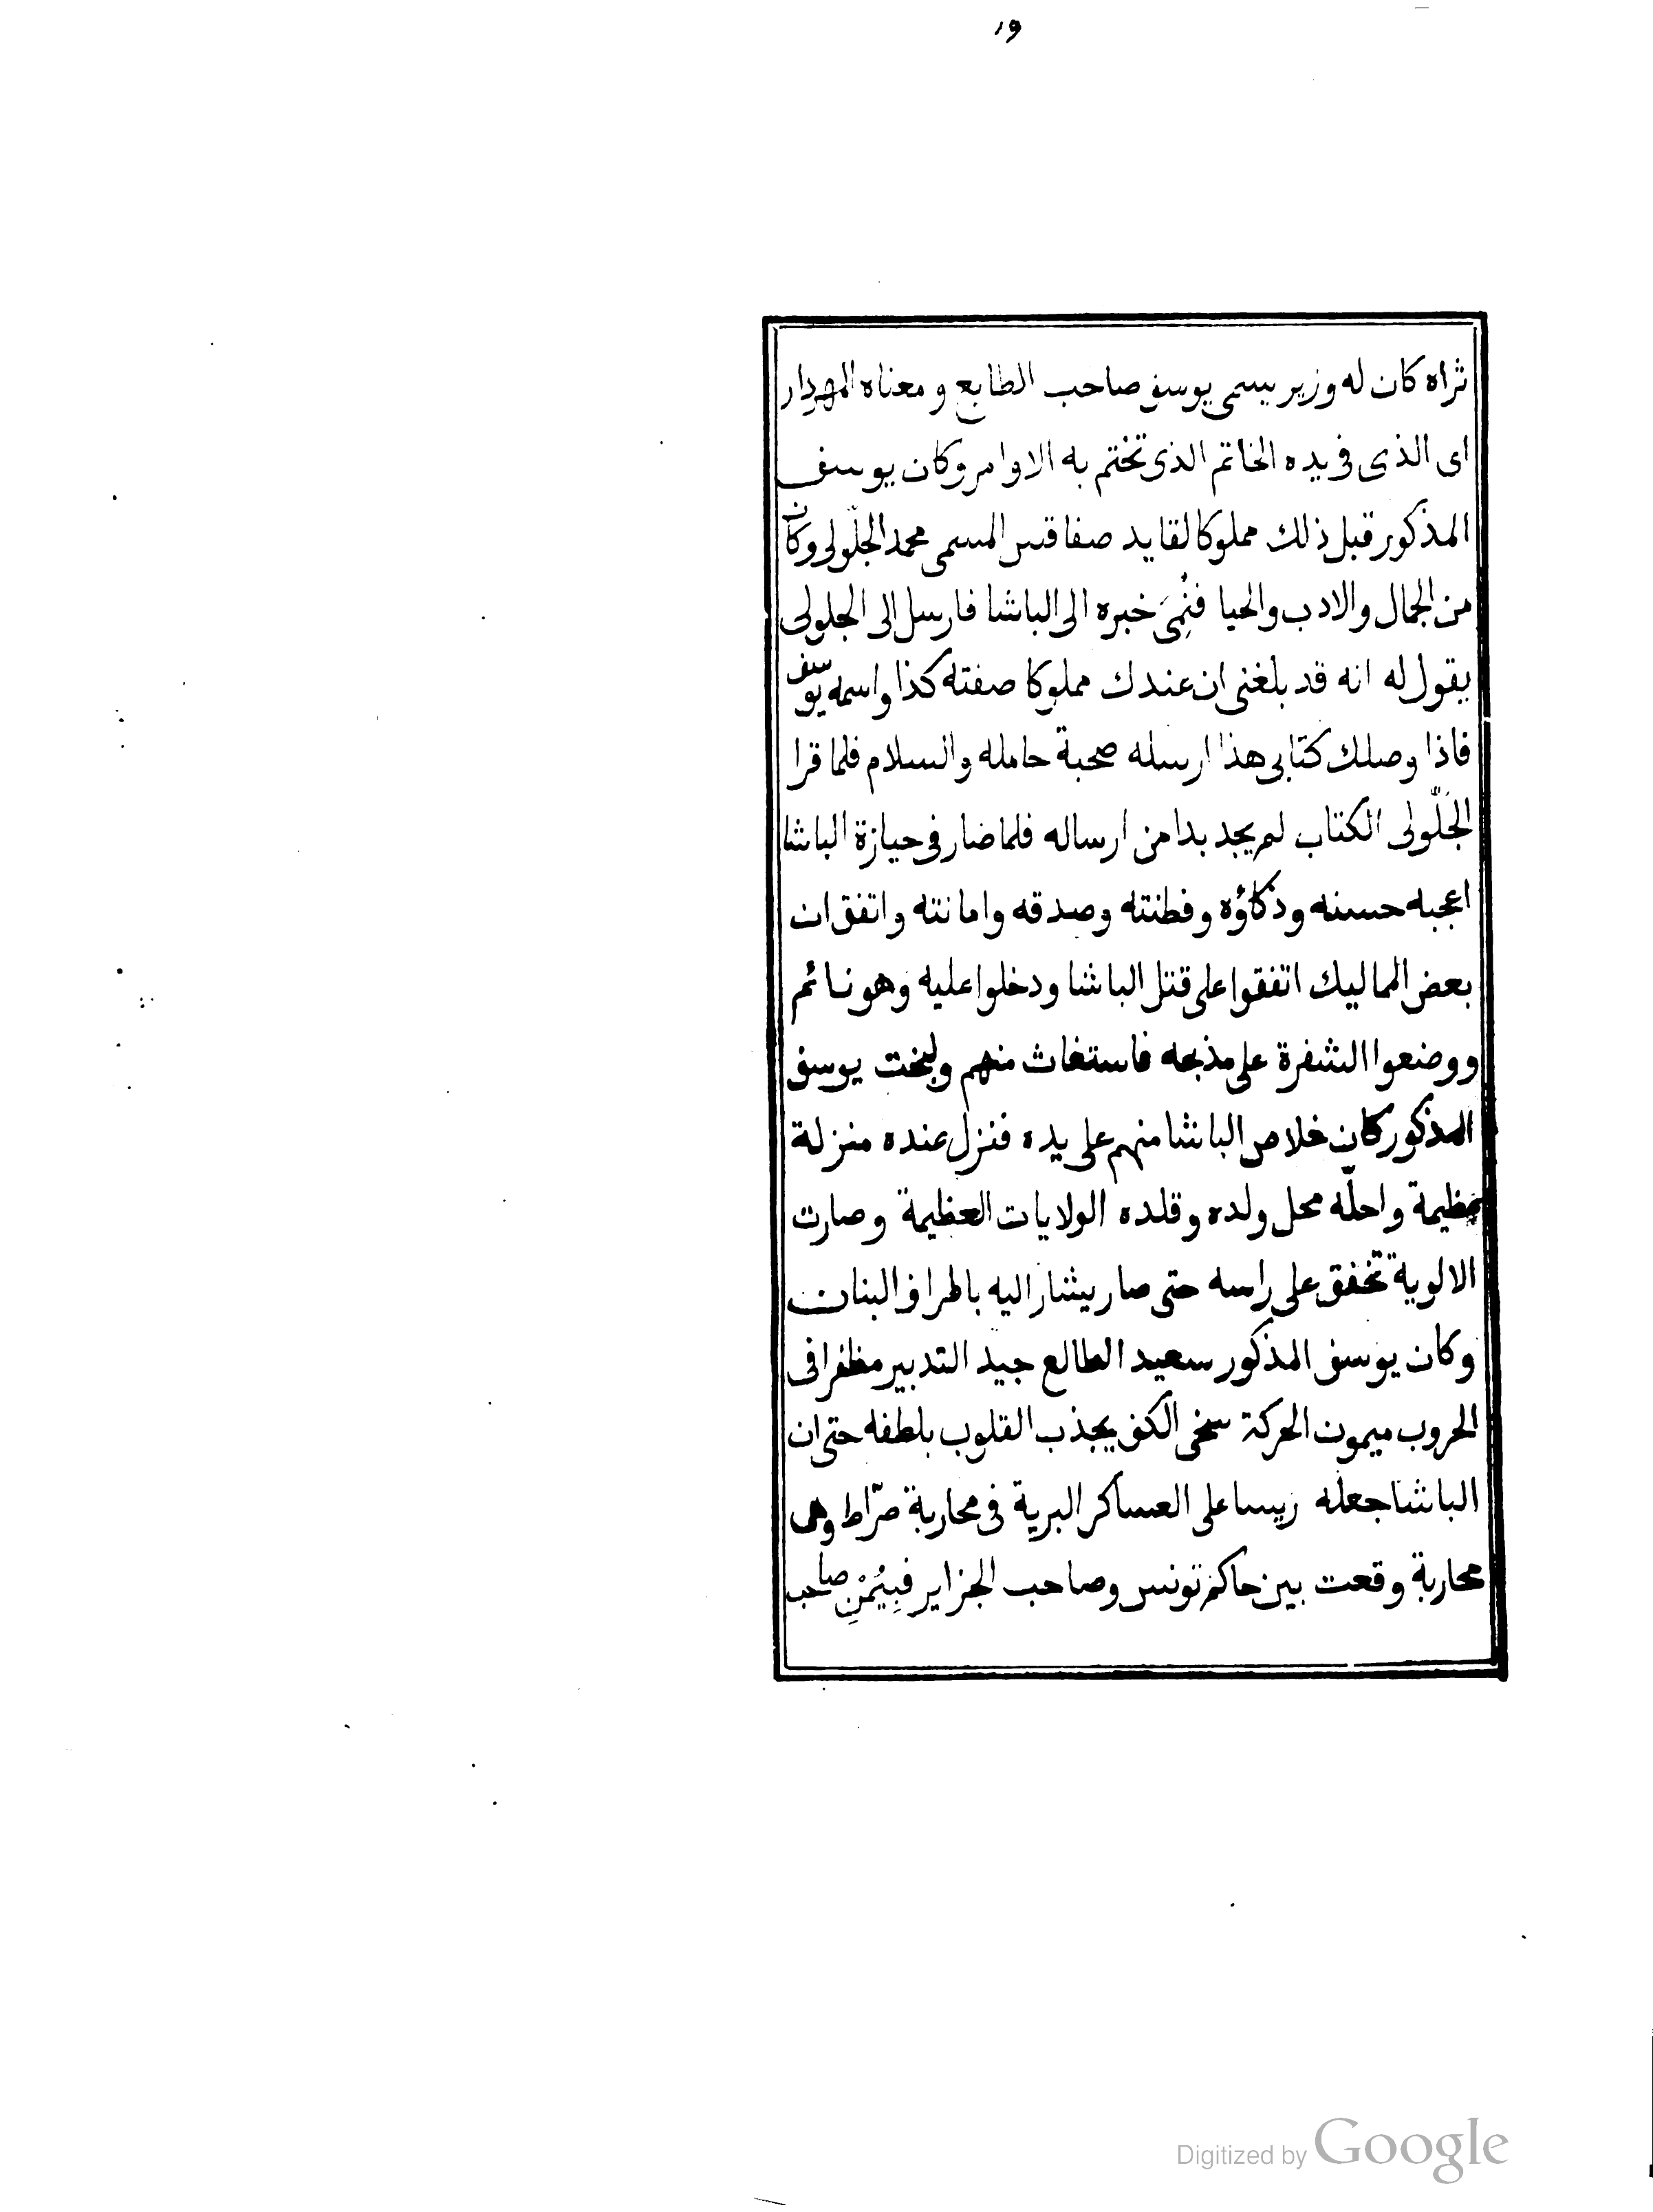 ١٩
ثراه كان له وزير يسمى يوسف صاحب الطابع ومعناه المهردار
اى الذى فى يده الخاتم الذى تختم به الاوامر وكان يوسف
المذكور قبل ذلك مملوكا لقايد صفاقس المسمى محمد الجلّولى وكان
من الجمال والادب والحيا فنُمِىَ خبره الى الباشا فارسل الى الجلولى
يقول له انه قد بلغنى ان عندك مملوكا صفته كذا واسمه يوسف
فاذا وصلك كتابى هذا ارسله صحبة حامله والسلام فلما قرا
الجَلّولى الكتاب لم يجد بدا من ارساله فلما ضار فى حيازة الباشا
اعجبه حسنه وذكاؤه وفطنته وصدقه وامانته واتفق ان
بعض المماليك اتفقوا على قتل الباشا ودخلوا عليه وهو نائم
ووضعوا الشفرة على مذبحه فاستغاث منهم ولبخت يوسف
المذكور كان خلاص الباشا منهم على يده فنزل عنده منزلة
عظيمة واحلّه محل ولده وقلده الولايات العظيمة وصارت
الالوية تخفق على راسه حتى صار يشار اليه باطراف البنان
وكان يوسف المذكور سعيد الطالع جيد التدبير مظفرا فى
الحروب ميمون الحركة سخى الكف يجذب القلوب بلطفه حتى ان
الباشا جعله رييسا على العساكر البرية فى محاربة صرّاط وهى
محاربة وقعت بين حاكم تونس وصاحب الجزاير فبِيُمْنِ صاحب
Digitized by Google